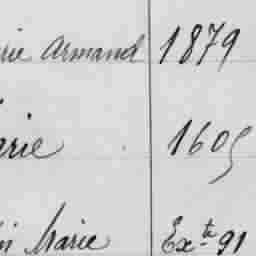 rie Armand 1879
arie 1605
Marie Exte 91